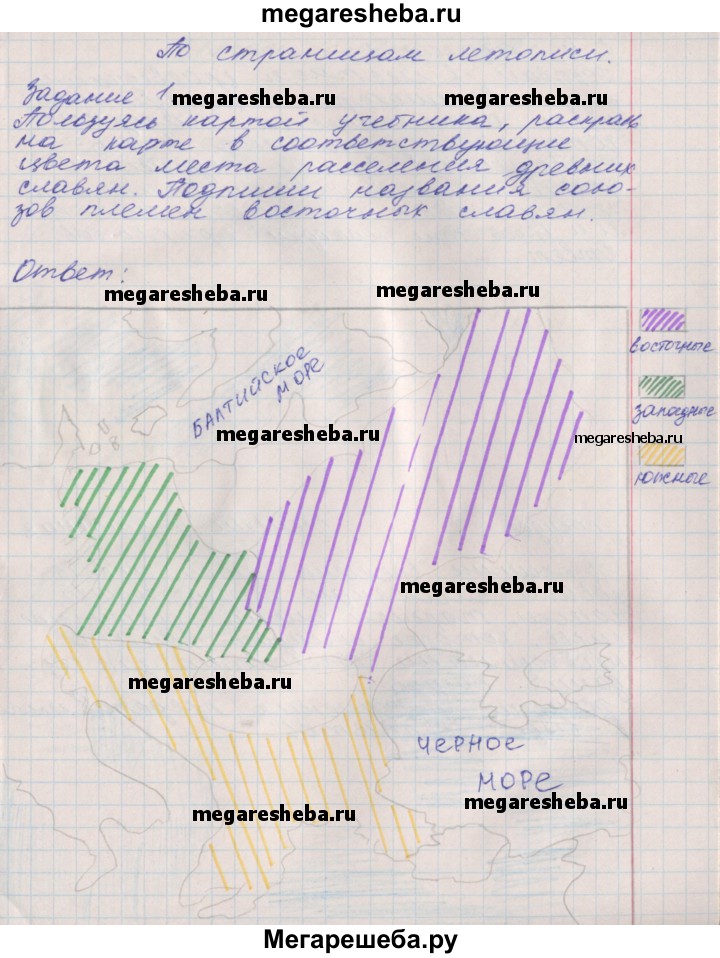 megaresheba.ru
По страницам летописи.
Задание 1
megaresheba.ru
megaresheba.ru
Пользуясь картой учебника, раскрась
на карте в соответствующие
цвета места расселения древних
славян. Подпиши названия сою-
зов племен восточных славян.
Ответ:
megaresheba.ru
megaresheba.ru
восточные
БАЛТИЙСКОЕ
МОРЕ
западные
megaresheba.ru
megaresheba.ru
южные
megaresheba.ru
megaresheba.ru
ЧЕРНОЕ
МОРЕ
megaresheba.ru
megaresheba.ru
Мегарешеба.ру